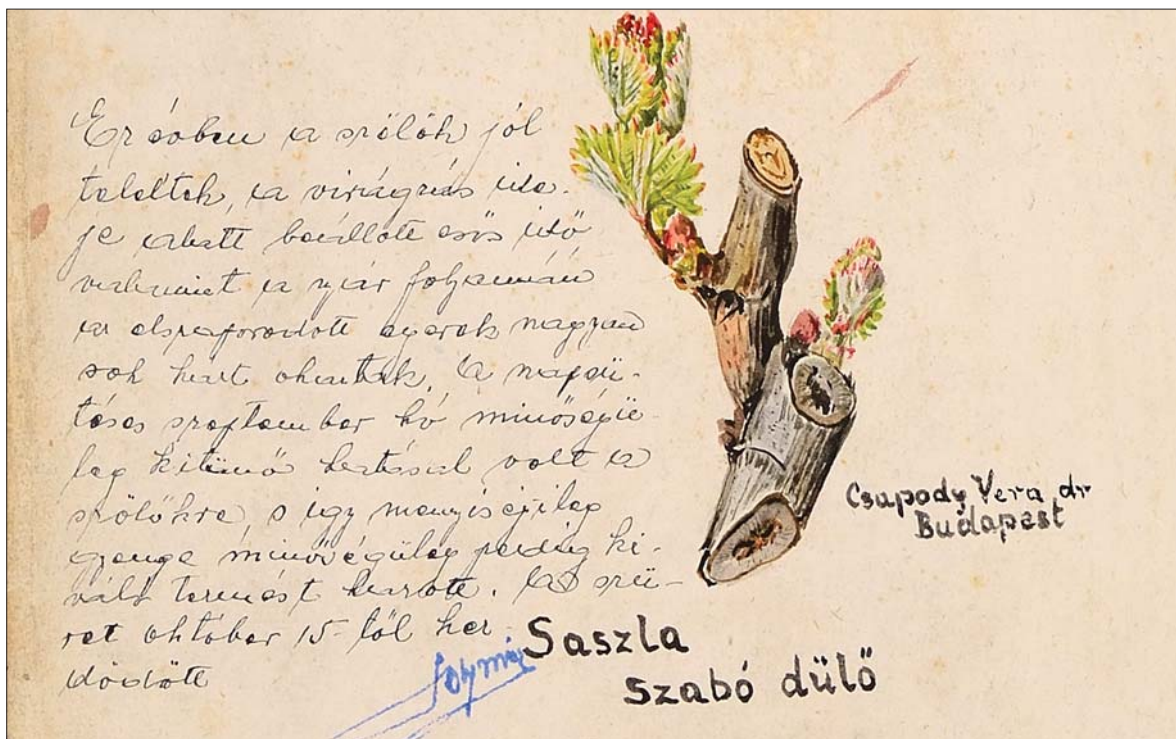 Ez évben a szőlők jól
teleltek, a virágzás ide-
je alatt beállott esős idő
valamint a nyár folyamán
az elszaporodott egerek nagyon
sok kárt okoztak. A napsü-
téses szeptember hó minőségi-
leg kitünő hatással volt a
szőlőkre, s igy menyiségileg
gyenge minőségüleg pedig ki-
váló termést hozott. A szü-
ret október 15-től kez-
dődött
Csapody Vera dr
Budapest
Saszla
szabó dülő